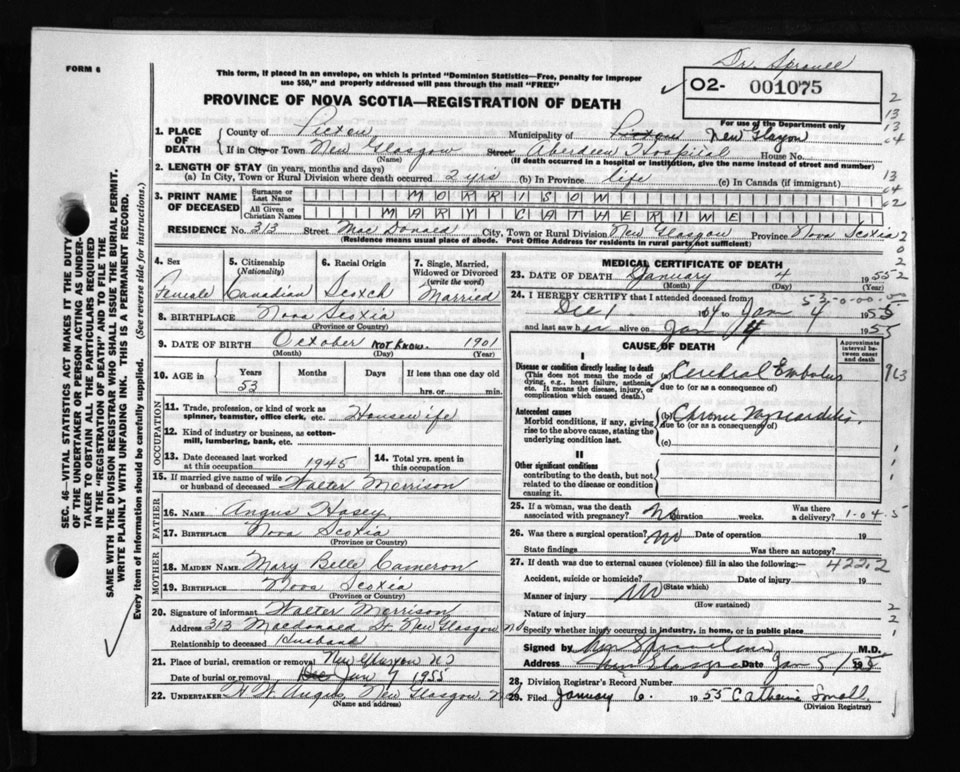 FORM 6
Dr. Sproull
This form, if placed in an envelope, on which is printed "Dominion Statistics—Free, penalty for improper
use $50," and properly addressed will pass through the mail "FREE"
02- 001075
For use of the Department only
PROVINCE OF NOVA SCOTIA—REGISTRATION OF DEATH
1. PLACE OF DEATH County of Pictou Municipality of Pictou New Glasgow
If in City or Town New Glasgow (Name) Street Aberdeen Hospital House No.
(If death occurred in a hospital or institution, give the name instead of street and number)
2. LENGTH OF STAY (in years, months and days)
(a) In City, Town or Rural Division where death occurred 2 yrs (b) In Province life (c) In Canada (if immigrant)
3. PRINT NAME OF DECEASED Surname or Last Name MORRISON
All Given or Christian Names MARY CATHERINE
RESIDENCE No. 313 Street MacDonald City, Town or Rural Division New Glasgow Province Nova Scotia
(Residence means usual place of abode. Post Office Address for residents in rural parts not sufficient)
4. Sex Female
5. Citizenship (Nationality) Canadian
6. Racial Origin Scotch
7. Single, Married, Widowed or Divorced (write the word) Married
8. BIRTHPLACE Nova Scotia
(Province or Country)
9. DATE OF BIRTH October NOT KNOW. 1901
(Month) (Day) (Year)
10. AGE in Years 53 Months Days If less than one day old
hrs. or min.
OCCUPATION
11. Trade, profession, or kind of work as spinner, teamster, office clerk, etc. Housewife
12. Kind of industry or business, as cotton-mill, lumbering, bank, etc.
13. Date deceased last worked at this occupation 1945
14. Total yrs. spent in this occupation
15. If married give name of wife or husband of deceased Walter Morrison
FATHER
16. NAME Angus Hasey
17. BIRTHPLACE Nova Scotia
(Province or Country)
MOTHER
18. MAIDEN NAME Mary Belle Cameron
19. BIRTHPLACE Nova Scotia
(Province or Country)
20. Signature of informant Walter Morrison
Address 313 Macdonald St. New Glasgow NS
Relationship to deceased Husband
21. Place of burial, cremation or removal New Glasgow NS
Date of burial or removal Jan 7 1955
22. UNDERTAKER Angus, New Glasgow, N.S.
(Name and address)
MEDICAL CERTIFICATE OF DEATH
23. DATE OF DEATH January 4 1955
(Month) (Day)
24. I HEREBY CERTIFY that I attended deceased from
Dec 1 1954 to Jan 4 1955
and last saw her alive on Jan 4 1955
CAUSE OF DEATH
Approximate interval between onset and death
I
Disease or condition directly leading to death
(This does not mean the mode of dying, e.g., heart failure, asthenia, etc. It means the disease, injury, or complication which caused death.)
(a) Cerebral Embolus
due to (or as a consequence of)
Antecedent causes
Morbid conditions, if any, giving rise to the above cause, stating the underlying condition last.
(b) Chronic Myocarditis
due to (or as a consequence of)
(c)
II
Other significant conditions
contributing to the death, but not related to the disease or condition causing it.
25. If a woman, was the death associated with pregnancy? No Duration weeks. Was there a delivery?
26. Was there a surgical operation? No Date of operation 19
State findings Was there an autopsy?
27. If death was due to external causes (violence) fill in also the following:— 422.2
Accident, suicide or homicide? Date of injury 19
(State which)
Manner of injury No
(How sustained)
Nature of injury
Specify whether injury occurred in industry, in home, or in public place
Signed by M.D.
Address New Glasgow Date Jan 5/55
28. Division Registrar's Record Number
29. Filed January 6. 1955 Catherine Small
(Division Registrar)
SEC. 46—VITAL STATISTICS ACT MAKES IT THE DUTY
OF THE UNDERTAKER OR PERSON ACTING AS UNDER-
TAKER TO OBTAIN ALL THE PARTICULARS REQUIRED
IN THE "REGISTRATION OF DEATH" AND TO FILE THE
SAME WITH THE DIVISION REGISTRAR WHO SHALL ISSUE THE BURIAL PERMIT.
WRITE PLAINLY WITH UNFADING INK. THIS IS A PERMANENT RECORD.
Every item of information should be carefully supplied. (See reverse side for instructions.)